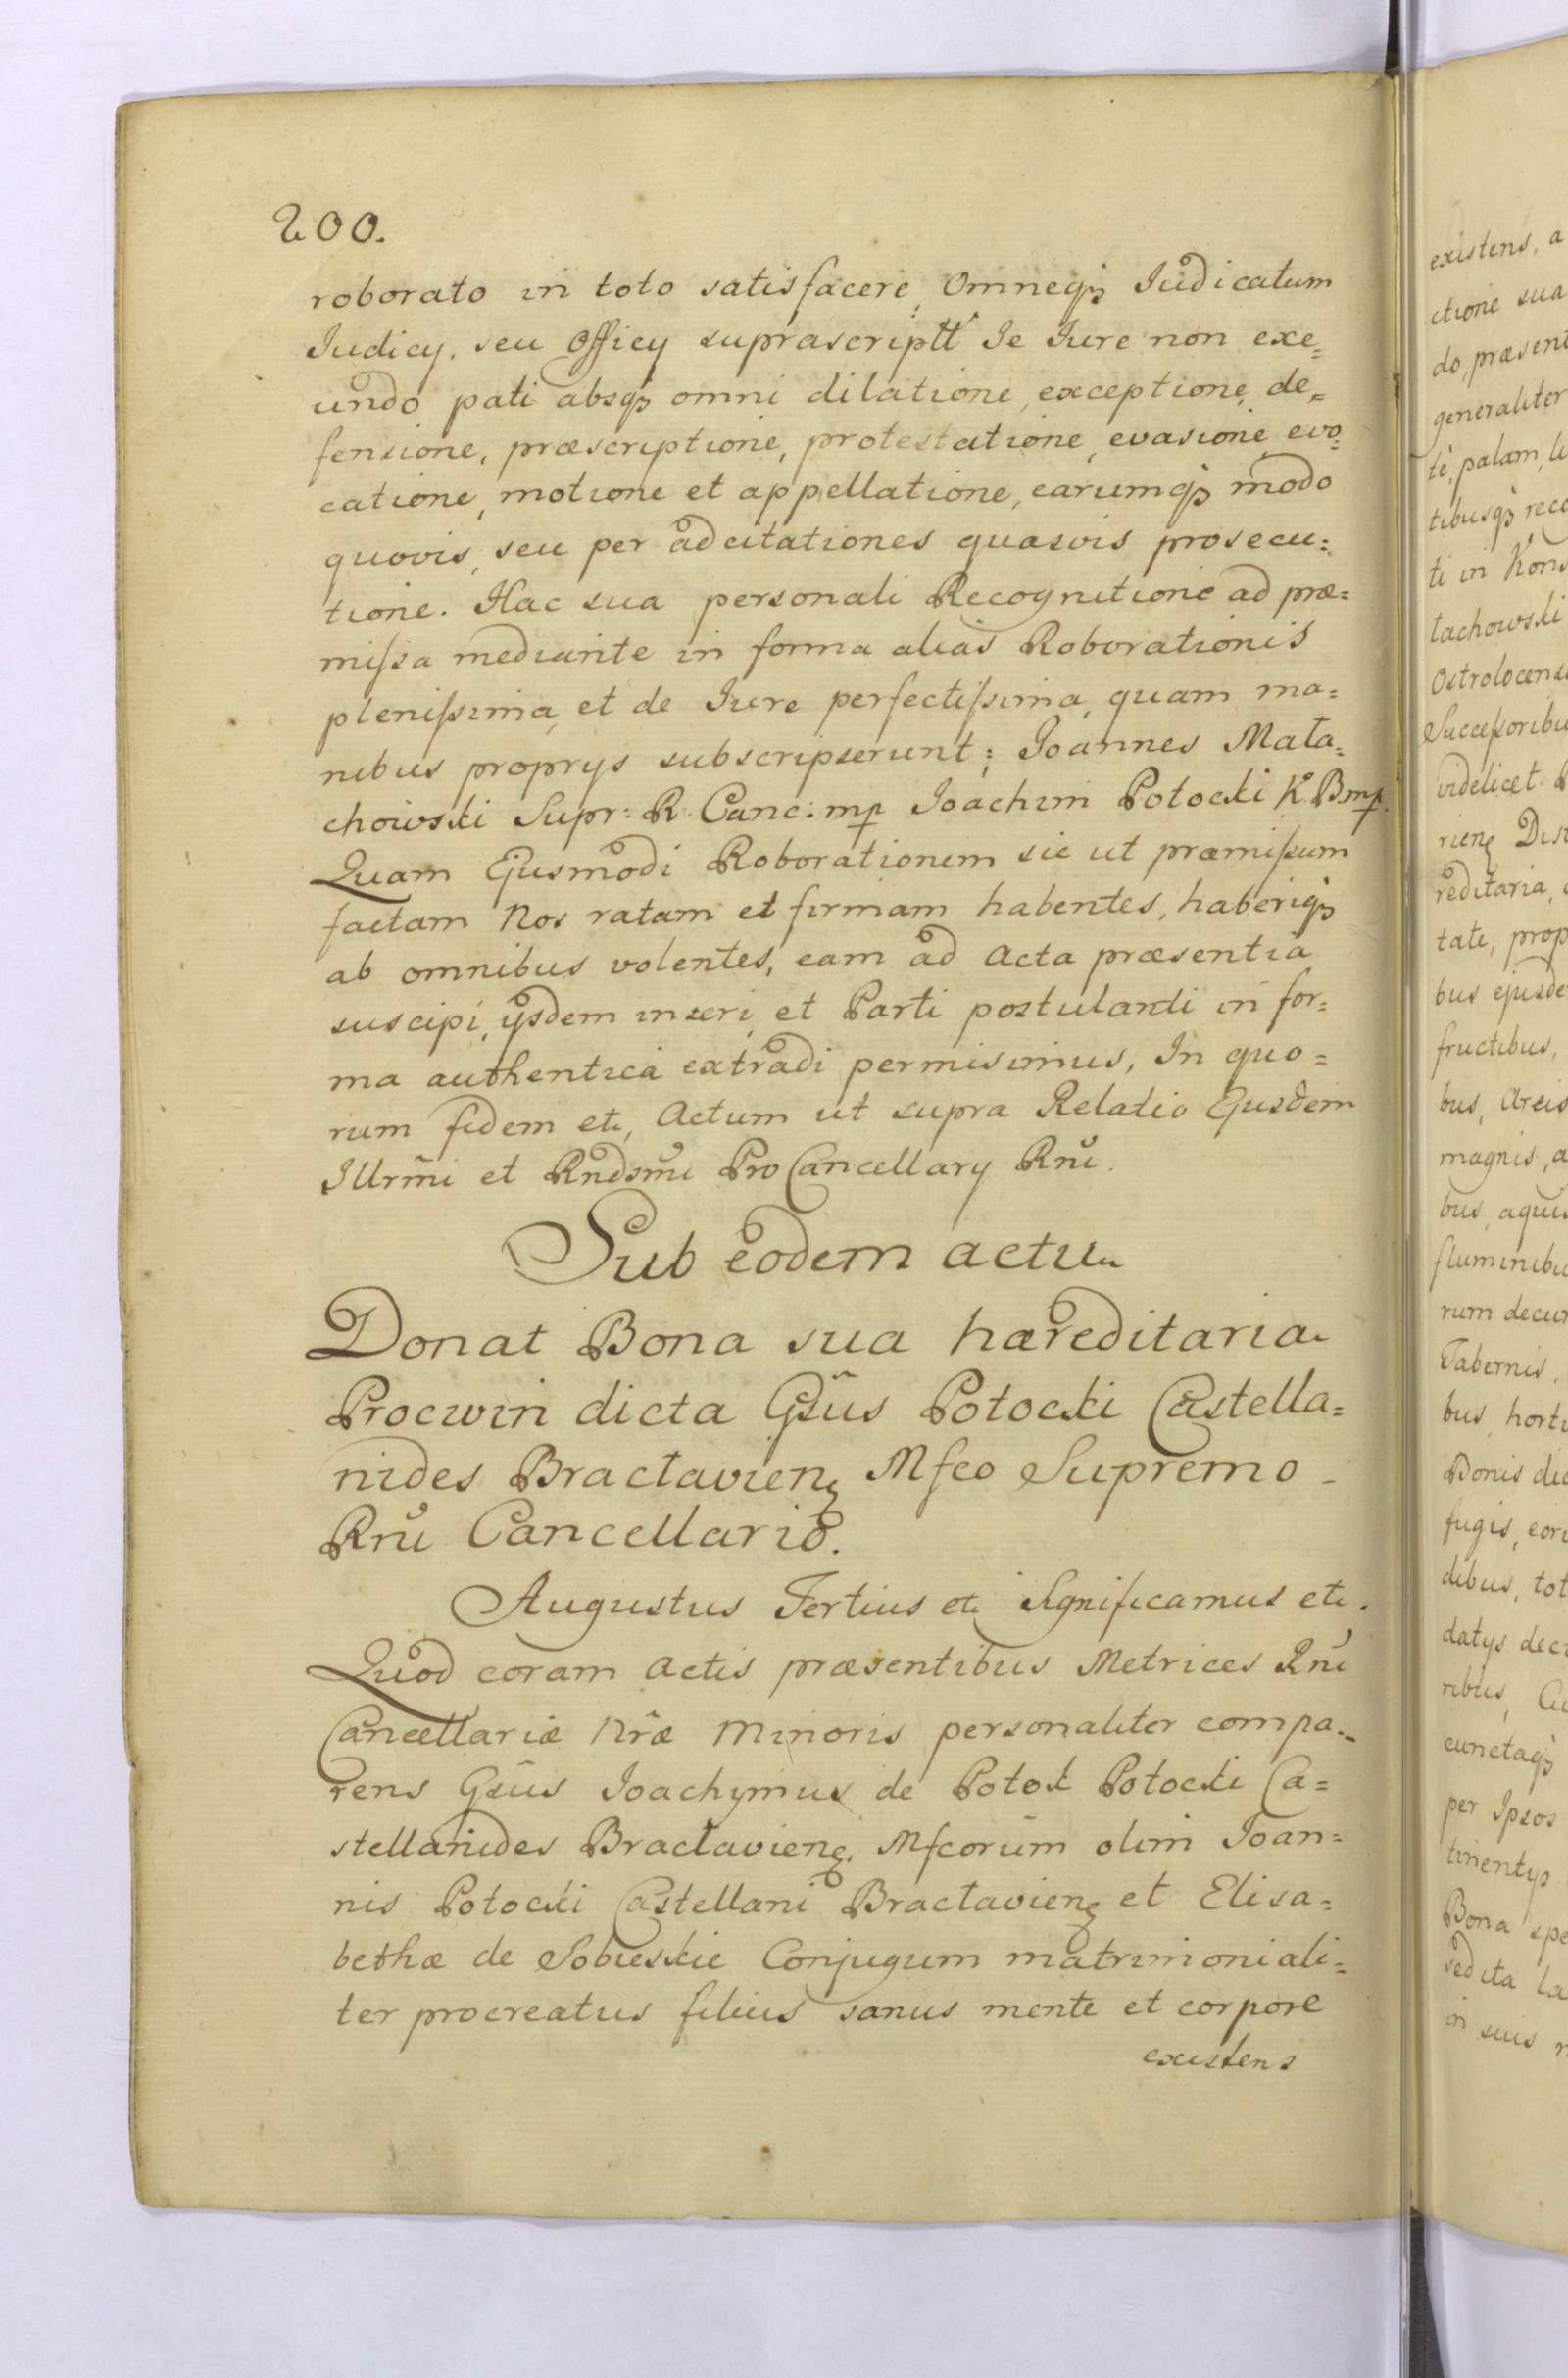 200.
roborato in toto satisfacere, Omneqꝫ Iudicatum
Iudicy, seu Officy suprascriptt Se Iure non exe=
undo pati absqꝫ omni dilatione, exceptione, de=
fensione, præscriptione, protestatione, evasione, evo=
catione, motione et appellatione, earumqꝫ modo
quovis, seu per adcitationes quasvis prosecu=
tione. Hac sua personali Recognitione ad præ=
missa mediante in forma alias Roborationis
plenissima, et de Iure perfectissima, quam ma=
nibus proprys subscripserunt; Ioannes Mała=
chowski Supr: R. Canc: mp Ioachim Potocki K. B. mp.
Quam Ejusmodi Roborationem sic ut præmissum
factam Nos ratam et firmam habentes, haberiqꝫ
ab omnibus volentes, eam ad Acta præsentia
suscipi, ysdem inseri, et Parti postulanti in for=
ma authentica extradi permisimus, In quo=
rum fidem etc, Actum ut supra Relatio Ejusdem
Illrm̃i et Rndsm̃i ProCancellary Rñi.
Sub eodem actu
Donat Bona sua hæreditaria
Procwin dicta Gsũs Potocki Castella=
nides Bractavien̨ Mfco Supremo
Rñi Cancellario.
Augustus Tertius etc Significamus etc.
Quod coram Actis præsentibus Metrices Rñi
Cancellariæ Nr̃æ Minoris personaliter compa=
rens Gsũs Ioachymus de Potok Potocki Ca=
stellanides Bractavien̨. Mfcorum olim Ioan=
nis Potocki Castellani Bractavien̨ et Elisa=
bethæ de Sobieskie Conjugum matrimoniali=
ter procreatus filius sanus mente et corpore
existens
existens, a
ctione sua
do, præsent
generaliter
tè, palam, li
tibusqꝫ reco
ti in Kons
łachowski
Ostrolocens
Successoribu
videlicet P
rien̨ Dist
reditaria,
tate, prop
bus ejusde
fructibus,
bus, Areis
magnis, a
bus, aquis
fluminibu
rum decur
Tabernis,
bus, horti
Bonis dic
fugis, eor
dibus, tot
datys dec
ribus, Ce
cunctaqꝫ
per Ipsos
tinentys
Bona spe
sedita la
in suis